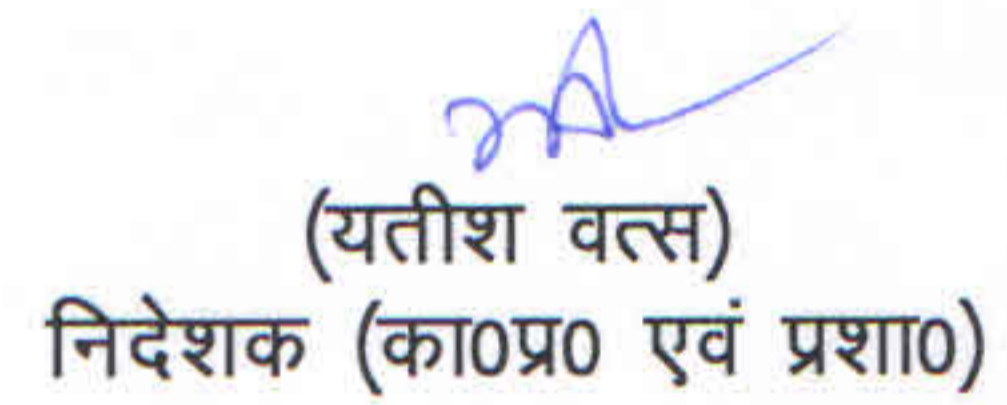 (यतीश वत्स)
निदेशक (का0प्र0 एवं प्रशा0)